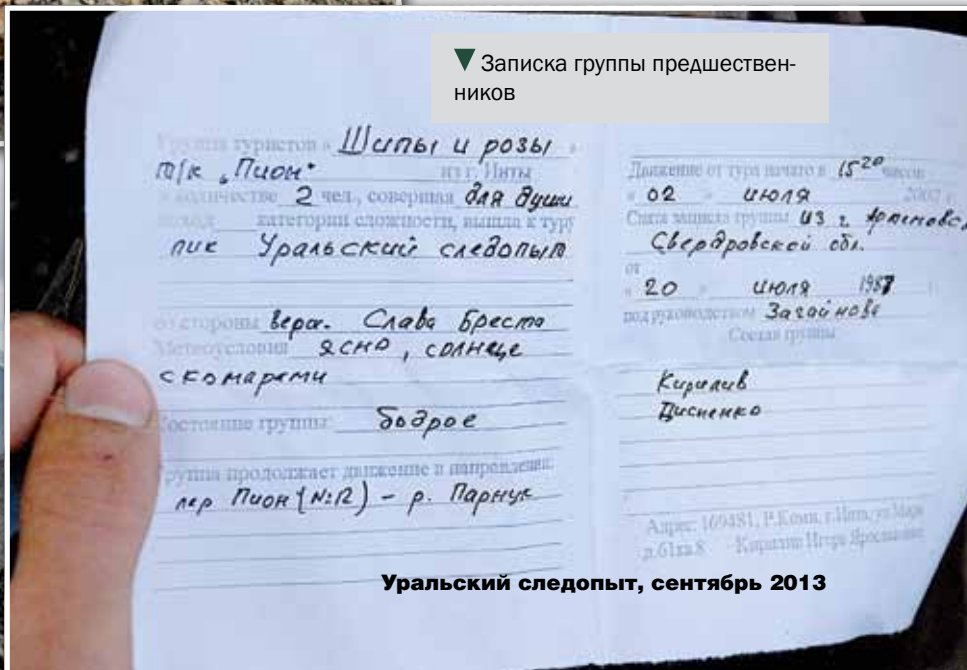 Записка группы предшествен-
ников
Группа туристов « Шипы и розы »
т/к „Пион" из г. Инты
в количестве 2 чел., совершая для души
поход категории сложности, вышла к туру
пик Уральский следопыт
со стороны верш. Слава Бреста
Метеоусловия ясно, солнце
с комарами
Состояние группы: бодрое
Группа продолжает движение в направлении:
пер Пион (№12) – р. Парнук
Движение от тура начато в 15 20 часов
« 02 » июля
Снята записка группы из г.
Свердровской обл.
от
« 20 » июля 1987 г.
под руководством
Состав группы
Кирилив
Адрес: 169481, Р.Коми, г.Инта,
Уральский следопыт, сентябрь 2013